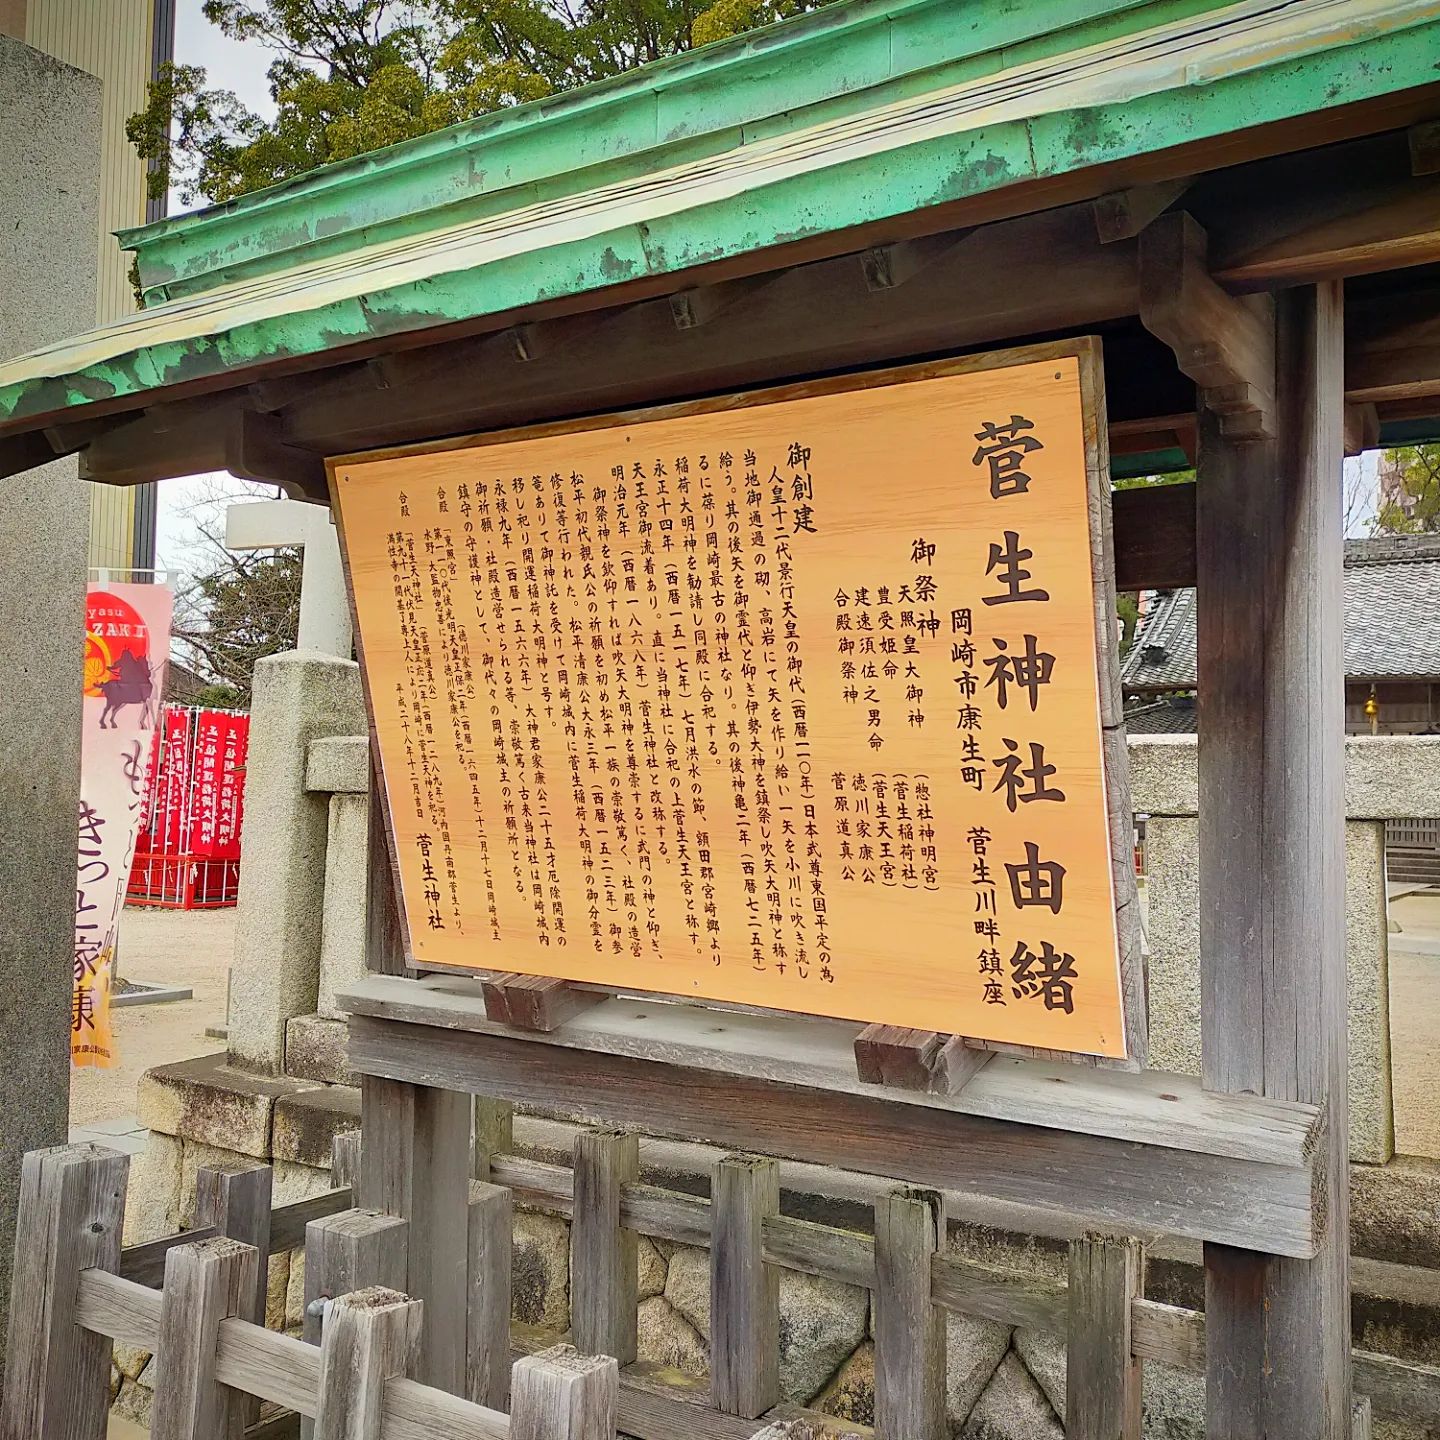 菅生神社由緒
岡崎市康生町 菅生川畔鎮座
御祭神
天照皇大御神 (惣社神明宮)
豊受姫命 (菅生稲荷社)
建速須佐之男命 (菅生天王宮)
合殿御祭神 徳川家康公
菅原道真公
御創建
人皇十二代景行天皇の御代(西暦一一〇年)日本武尊東国平定の為
当地御通過の砌、高岩にて矢を作り給い一矢を小川に吹き流し
給う。其の後矢を御霊代と仰ぎ伊勢大神を鎮祭し吹矢大明神と称す
るに葆り岡崎最古の神社なり。其の後神亀二年(西暦七二五年)
稲荷大明神を勧請し同殿に合祀する。
永正十四年(西暦一五一七年)七月洪水の節、額田郡宮崎郷より
天王宮御流着あり。直に当神社に合祀の上菅生天王宮と称す。
明治元年(西暦一八六八年)菅生神社と改称する。
御祭神を欽仰すれば吹矢大明神を尊崇するに武門の神と仰ぎ、
松平初代親氏公の祈願を初め松平一族の崇敬篤く、社殿の造営
修復等行われた。松平清康公大永三年(西暦一五二三年)御参
篭ありて御神託を受けて岡崎城内に菅生稲荷大明神の御分霊を
移し祀り開運稲荷大明神と号す。
永禄九年(西暦一五六六年)大神君家康公二十五才厄除開運の
御祈願・社殿造営せられる等、崇敬篤く古来当神社は岡崎城内
鎮守の守護神として、御代々の岡崎城主の祈願所となる。
合殿 「東照宮」(徳川家康公)
第一一〇代後光明天皇正保二年(西暦一六四五年)十二月十七日岡崎城主
水野大監物忠善により徳川家康公を祀る。
合殿 「菅生天神社」(菅原道真公)
第九十二代伏見天皇正応二年(西暦一二八九年)河内国丹南郡菅生より、
満性寺の開基了専上人により岡崎に菅生天神を祀る。
平成二十八年十二月吉日 菅生神社
正一位開運稲荷大明神
yasu
ZAKI
きっと家康